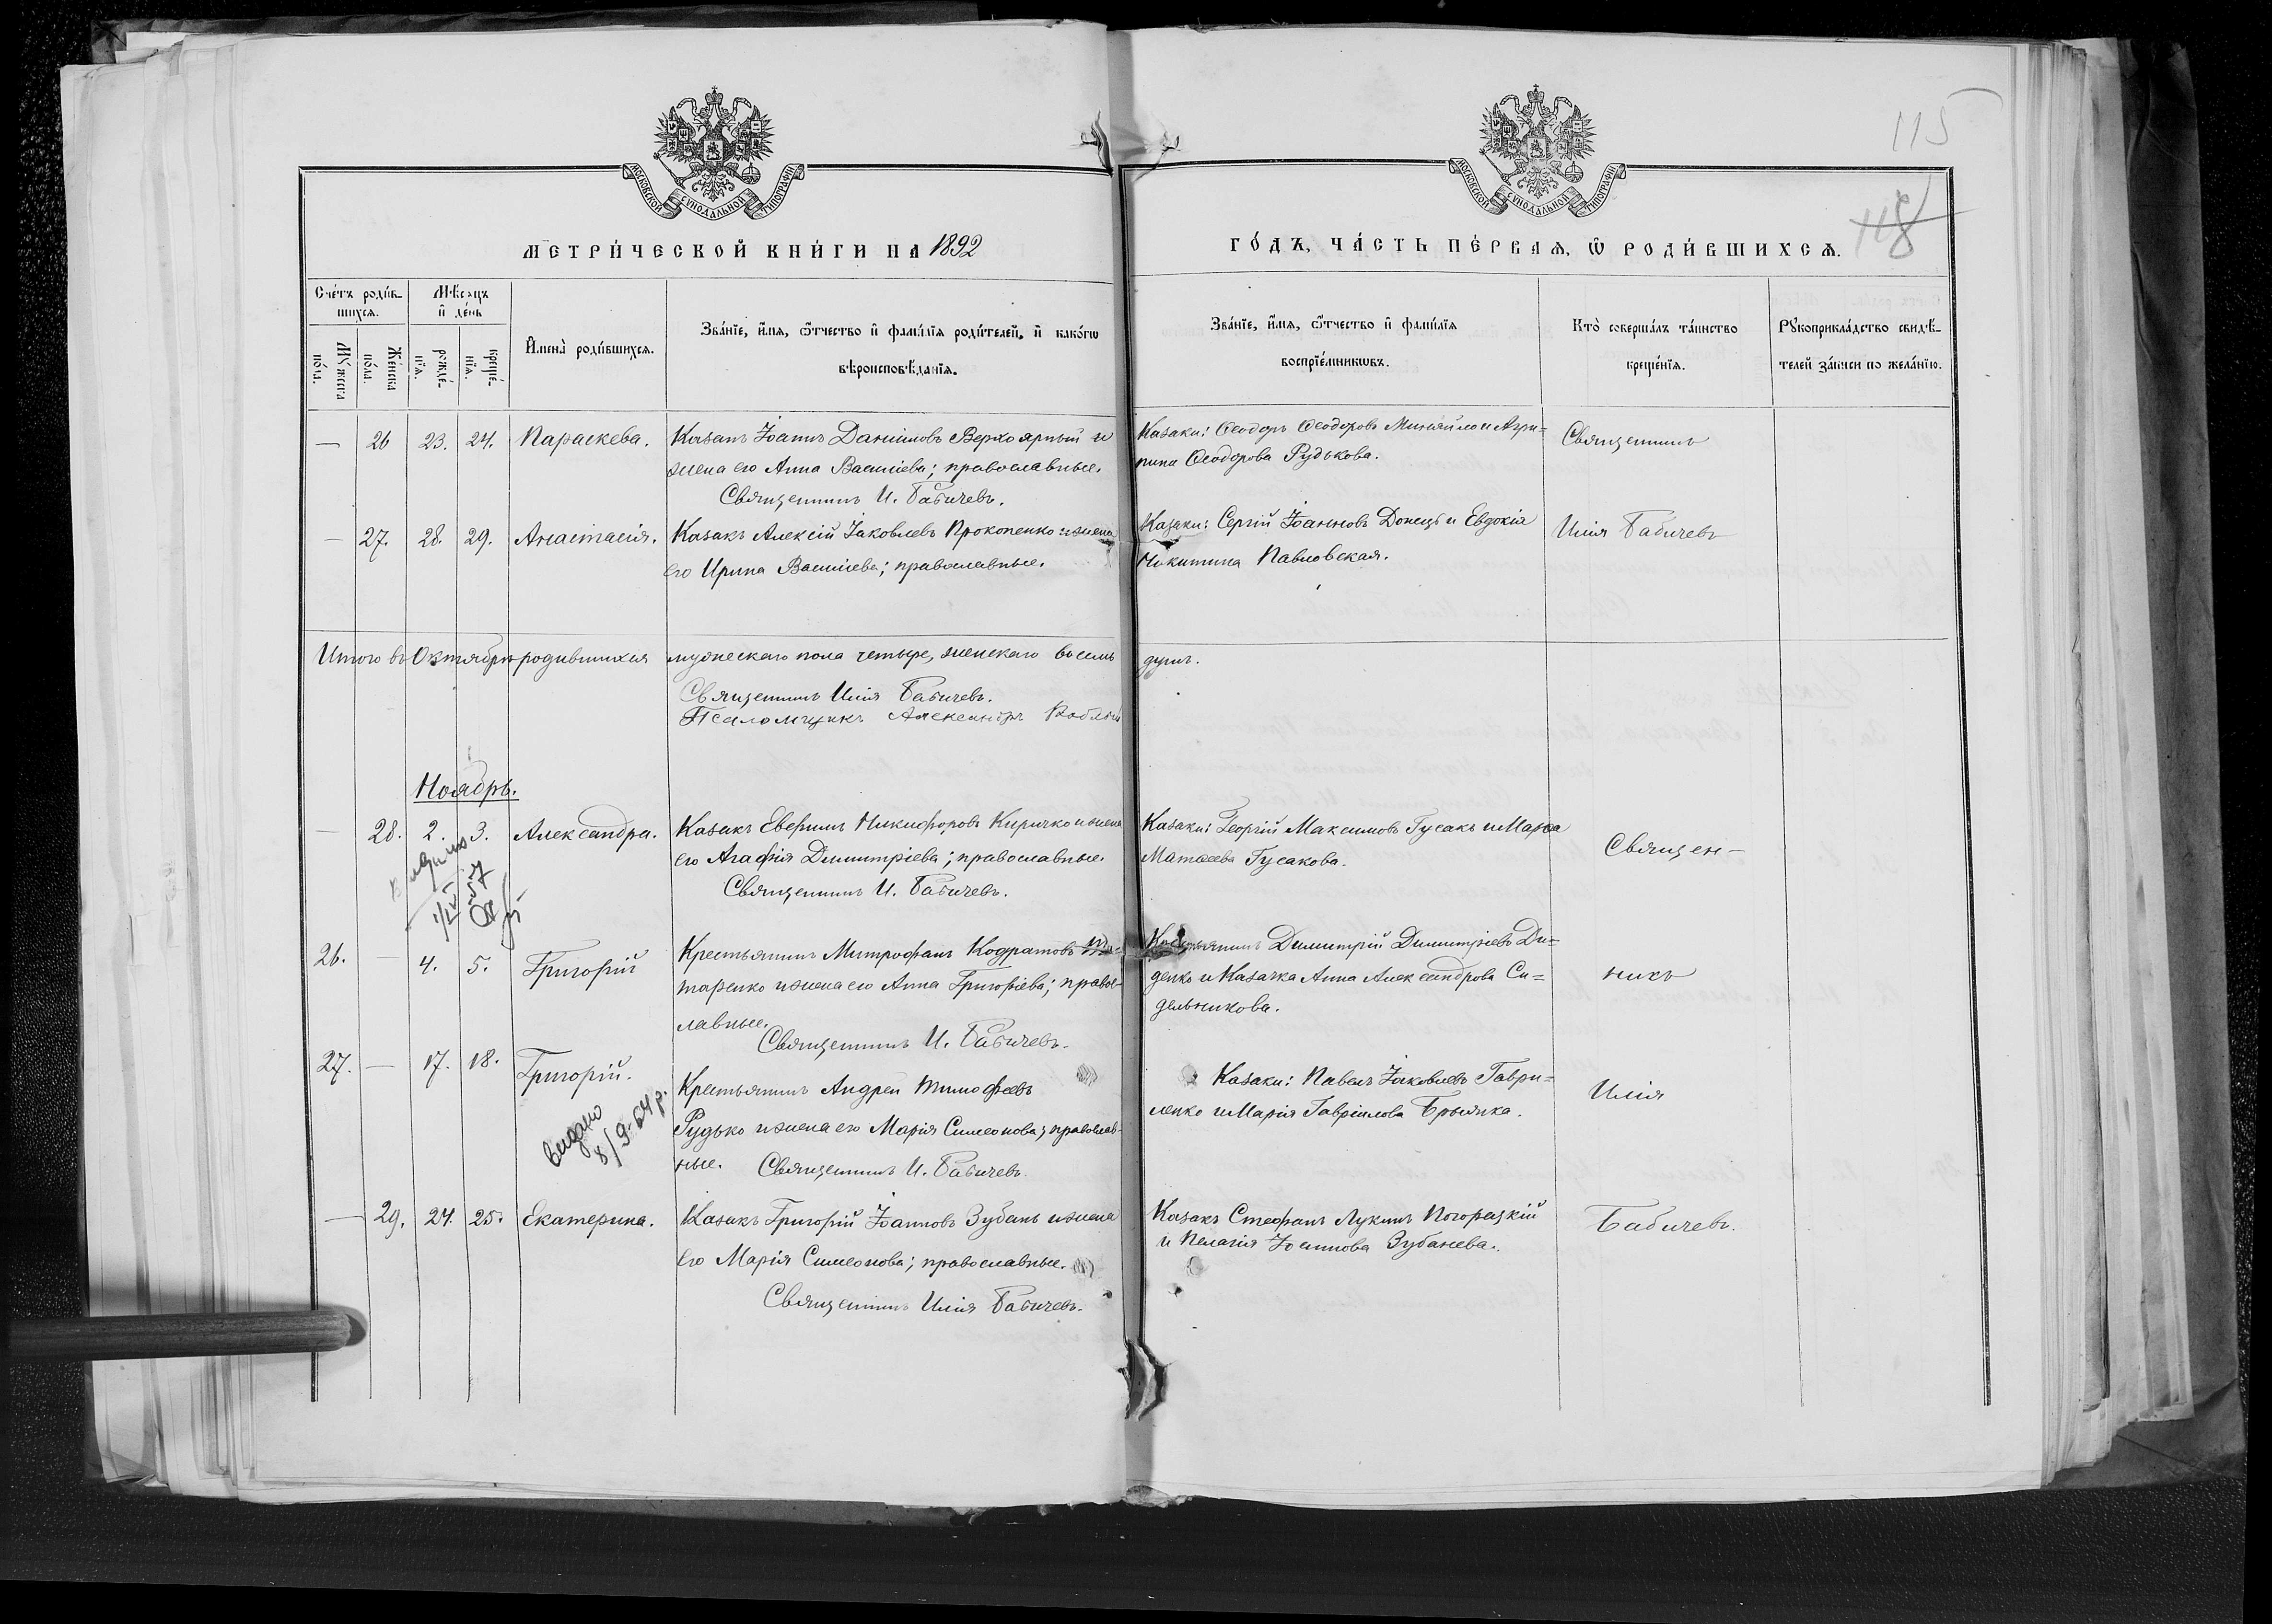 115
118
МОСКОВСКОЙ СѴНОДАЛЬНОЙ ТИПОГРАФІИ
МОСКОВСКОЙ СѴНОДАЛЬНОЙ ТИПОГРАФІИ
МЕТРИ́ЧЕСКОЙ КНИ́ГИ НА 1892
ГО́ДЪ, ЧА́СТЬ ПЕ́РВАѦ, Ѿ РОДИ́ВШИХСѦ.
Сче́тъ роди́в-
шихсѧ.
Мѣсѧцъ
и҆ де́нь
Мꙋжеска
по́ла.
Же́нска
по́ла.
рожде́-
нїѧ.
креще́-
нїѧ.
И҆мена̀ роди́вшихсѧ.
Зва́нїе, и҆́мѧ, ѻ҆́тчество и҆ фами́лїѧ роди́телей, и҆ како́гѡ
вѣроисповѣ́данїѧ.
Зва́нїе, и҆́мѧ, ѻ҆́тчество и҆ фами́лїѧ
воспрїе́мникѡвъ.
Кто̀ соверша́лъ та́инство
креще́нїѧ.
Рꙋкоприкла́дство свидѣ́-
телей за́писи по жела́нїю.
— 26 23. 24. Параскева. Казакъ Іоаннъ Даніиловъ Верхоярный и
жена его Анна Василіева; православные.
Священникъ И. Бабичевъ.
Казаки: Ѳеодоръ Ѳеодоровъ Миняйло и Агри=
пина Ѳеодорова Рудькова.
Священникъ
— 27. 28. 29. Анастасія. Казакъ Алексій Іаковлевъ Прокопенко и жена
его Ирина Василіева; православные.
Казаки: Сергій Іоанновъ Донецъ и Евдокія
Никитина Павловская.
Илія Бабичевъ
Итого въ Октябрѣ родившихся мужескаго пола четыре, женскаго восемь душъ.
Священникъ Илія Бабичевъ.
Псаломщикъ Александръ
Ноябрь.
— 28. 2. 3. Александра. Казакъ Евфимъ Никифоровъ Киричко и жена
его Агафія Димитріева; православные.
Священникъ И. Бабичевъ.
Казаки: Георгій Максимовъ Гусакъ и Марѳа
Матѳеева Гусакова.
Священ-
57
26. — 4. 5. Григорій Крестьянинъ Митрофанъ Кодратовъ
таренко и жена его Анна Григоріева; правос-
лавные.
Священникъ И. Бабичевъ.
Димитрій Димитріевъ Ди=
денко и Казачка Анна Александрова Си=
дельникова.
никъ
27. — 17. 18. Григорій. Крестьянинъ Андрей Тимоѳеевъ
Рудько и жена его Марія Симеонова; православ-
ные. Священникъ И. Бабичевъ.
видано
8/9-64 р.
Казаки: Павелъ Іаковлевъ Гаври=
ленко и Марія Гавріилова
Илія
— 29. 24. 25. Екатерина. Казакъ Григорій Іоанновъ Зубань и жена
его Марія Симеонова; православные.
Священникъ Илія Бабичевъ.
Казакъ Стефанъ Лукинъ Погорецкій
и Пелагія Іоаннова Зубанева.
Бабичевъ.